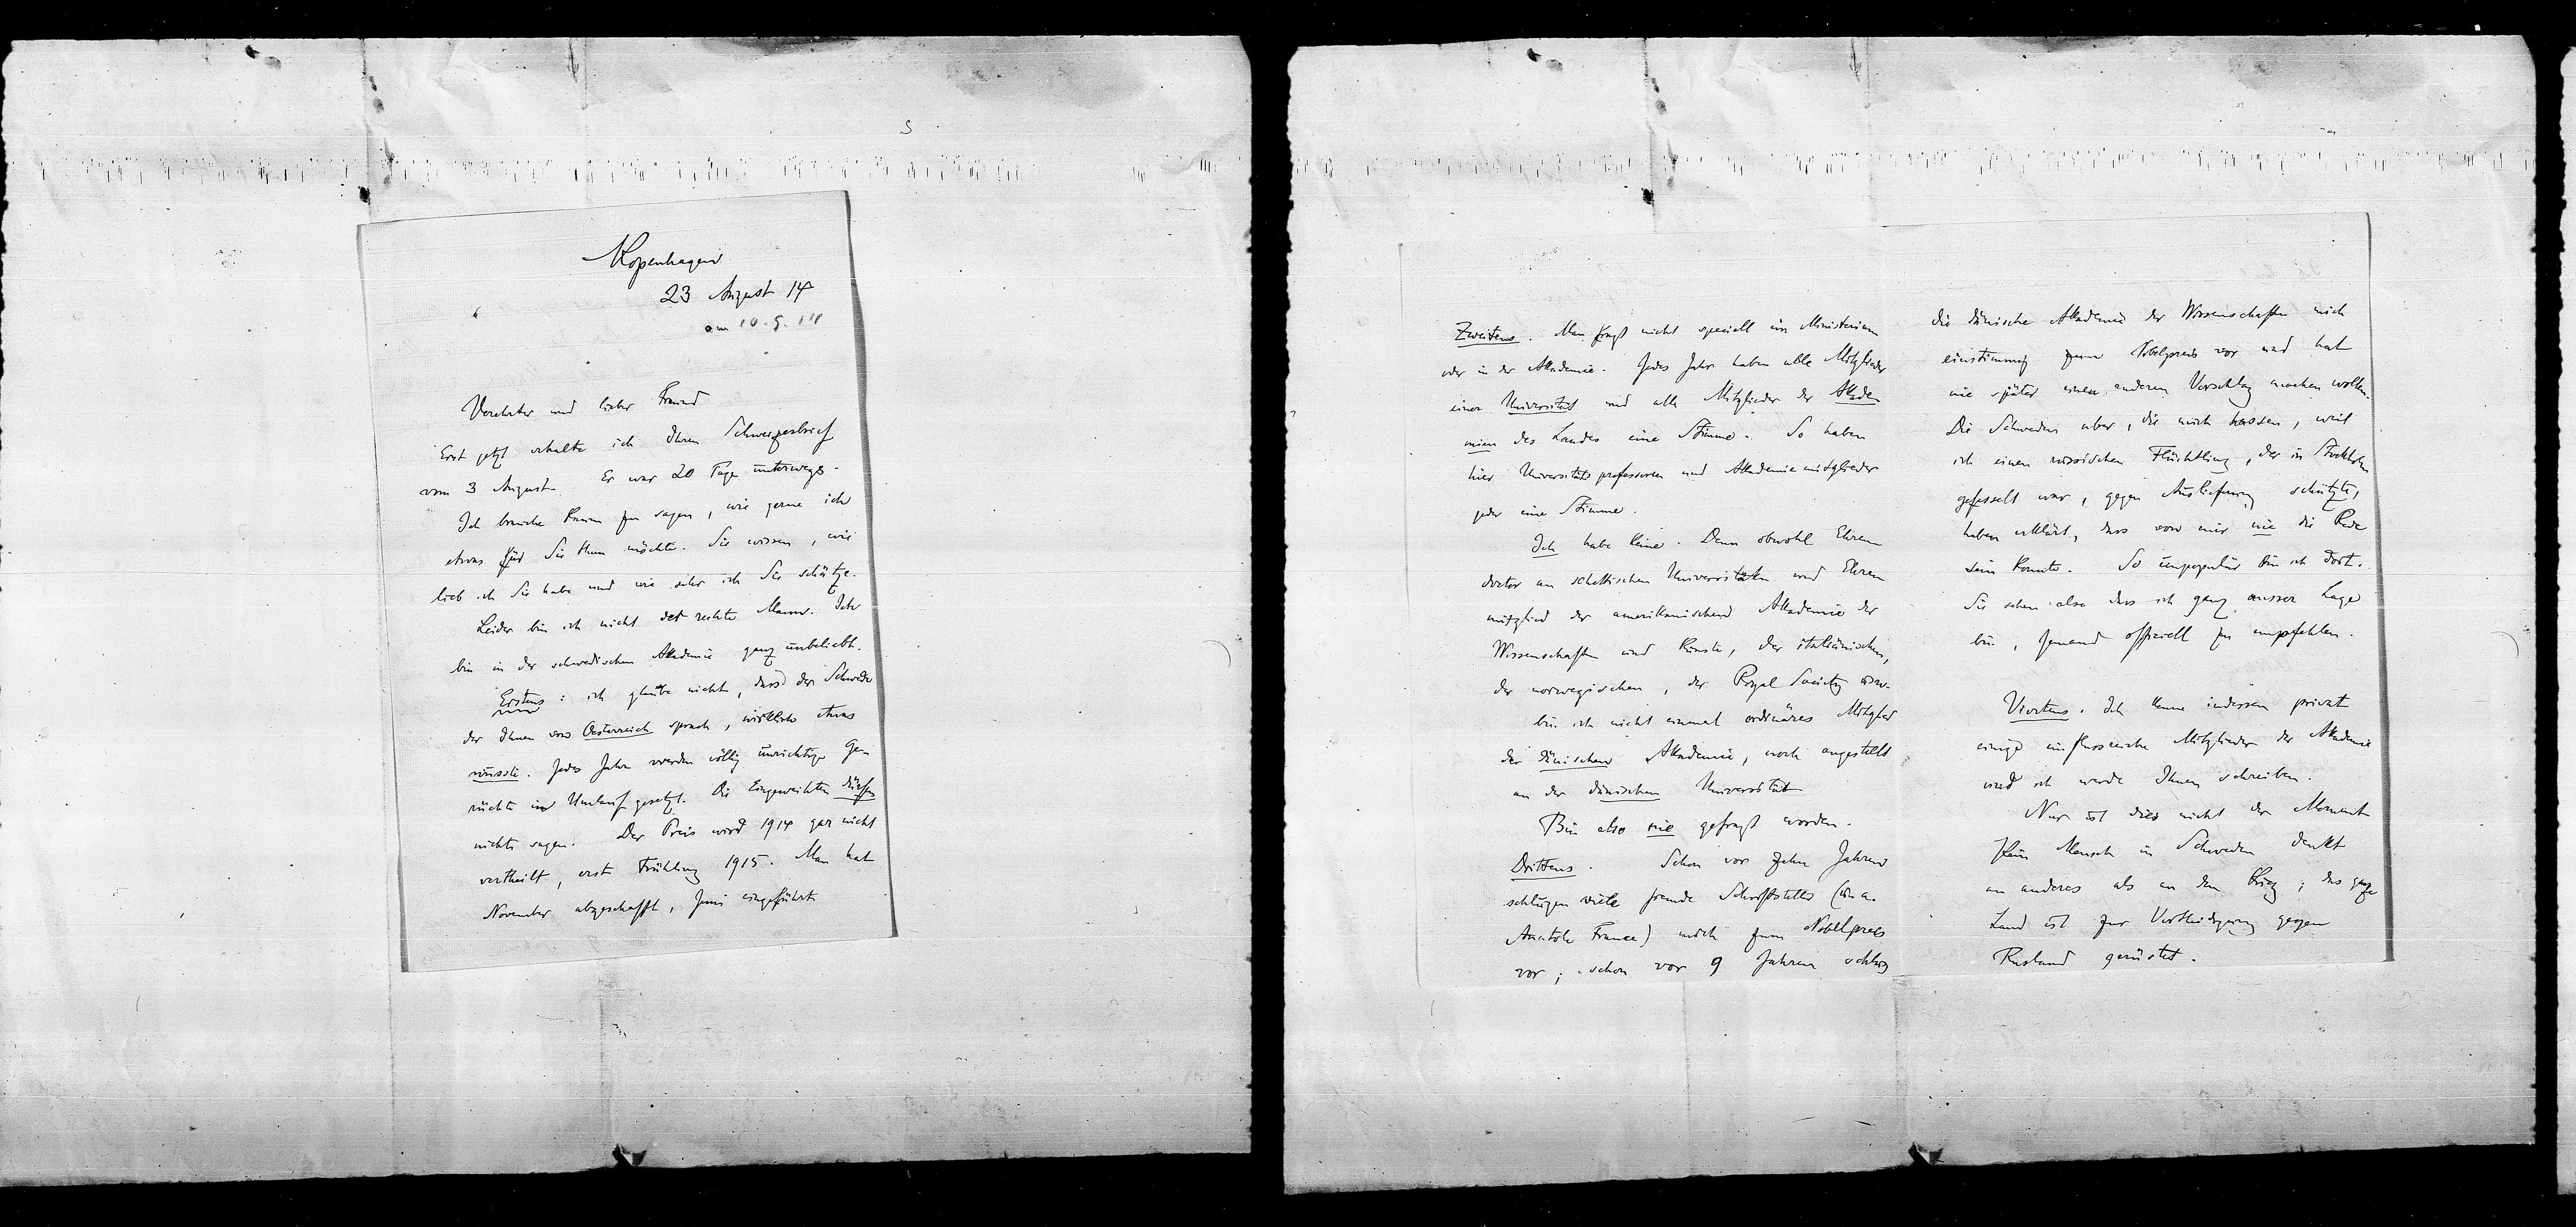 Kopenhagen
23 August 14
am 10.9.14
Verehrter und lieber Freund
Erst jetzt erhalte ich Ihren Schweizerbrief
vom 3 August. Er war 20 Tage unterwegs.
Ich brauche kaum zu sagen, wie gerne ich
etwas für Sie thun möchte. Sie wissen, wie
lieb ich Sie habe und wie sehr ich Sie schätze.
Leider bin ich nicht der rechte Mann. Ich
bin in der schwedischen Akademie ganz unbeliebt.
Erstens: ich glaube nicht, dass der Schwede
der Ihnen von Oesterreich sprach, wirklich etwas
wusste. Jedes Jahr werden völlig unrichtige Ge-
rüchte in Umlauf gesetzt. Die Eingeweihten dürfen
nichts sagen. Der Preis wird 1914 gar nicht
vertheilt, erst Frühling 1915. Man hat
November abgeschafft, Juni eingeführt
Zweitens. Man fragt nicht speciell im Ministerium
oder in der Akademie. Jedes Jahr haben alle Mitglieder
einer Universität und alle Mitglieder der Akade
mien des Landes eine Stimme. So haben
hier Universitätsprofessoren und Akademiemitglieder
jeder eine Stimme.
Ich habe keine. Denn obwohl Ehren
doctor an schottischen Universitäten und Ehren
mitglied der amerikanischen Akademie der
Wissenschaften und Künste, der italiänischen,
der norwegischen, der Royal Society usw.
bin ich nicht einmal ordinäres Mitglied
der dänischen Akademie, noch angestellt
an der dänischen Universität
Bin also nie gefragt worden.
Drittens. Schon vor zehn Jahren
schlugen viele fremde Schriftsteller (u. a.
Anatole France) mich zum Nobelpreis
vor; schon vor 9 Jahren schlug
die dänische Akademie der Wissenschaften mich
einstimmig zum Nobelpreis vor und hat
nie später einen anderen Vorschlag machen wollen.
Die Schweden aber, die mich hassen, weil
ich einen russischen Flüchtling, der in Stockholm
gefesselt war, gegen Auslieferung schützte,
haben erklärt, dass von mir nie die Rede
sein konnte. So unpopulär bin ich dort.
Sie sehen also dass ich ganz ausser Lage
bin, Jemand officiell zu empfehlen.
Viertens. Ich kenne indessen privat
einige einflussreiche Mitglieder der Akademie
und ich werde Ihnen schreiben.
Nur ist dies nicht der Moment
Kein Mensch in Schweden denkt
an anderes als an den Krieg; das ganze
Land ist zur Vertheidigung gegen
Rusland gerüstet.